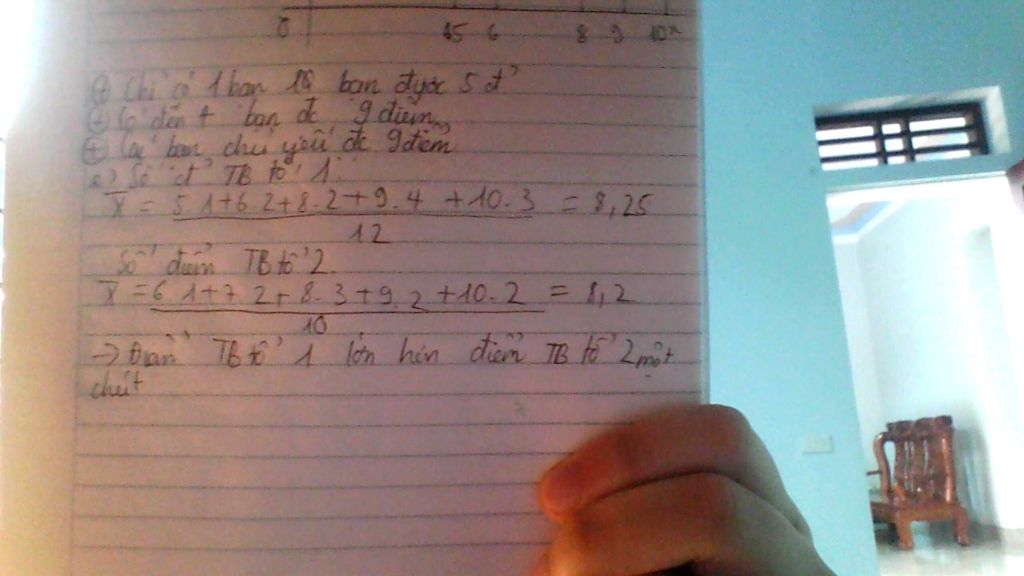 0 5 6 8 9 10 x
+ Chỉ có 1 bạn bạn được 5 đ
+ Có đến 4 bạn đc 9 điểm
+ Các bạn chủ yếu đc 9 điểm
Số đ TB tổ 1:
X̄ = 5.1+6.2+8.2+9.4+10.3 = 8,25
12
Số điểm TB tổ 2.
X̄ = 6.1+7.2+8.3+9.2+10.2 = 8,2
10
→ Điểm TB tổ 1 lớn hơn điểm TB tổ 2 một
chút